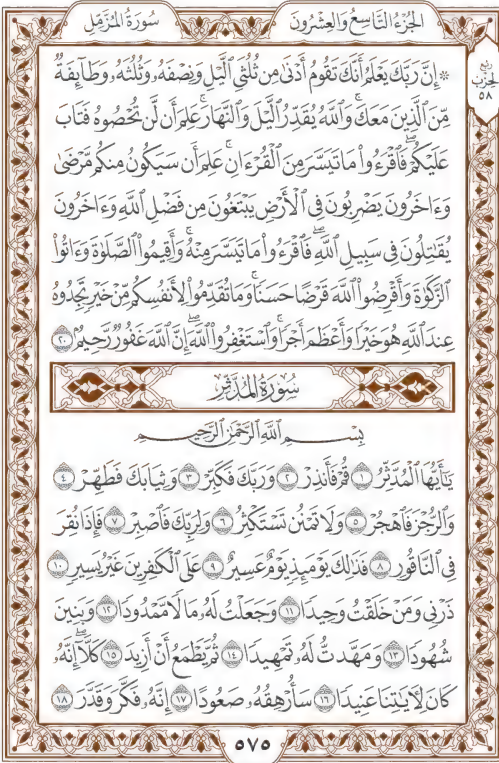 سُورَةُ المُزَّمِّلِ
الجُزْءُ التَّاسِعُ وَالعِشْرُونَ
رُبْعُ الحِزْبِ ٥٨
۞ إِنَّ رَبَّكَ يَعْلَمُ أَنَّكَ تَقُومُ أَدْنَىٰ مِن ثُلُثَيِ ٱلَّيْلِ وَنِصْفَهُۥ وَثُلُثَهُۥ وَطَآئِفَةٌ
مِّنَ ٱلَّذِينَ مَعَكَۚ وَٱللَّهُ يُقَدِّرُ ٱلَّيْلَ وَٱلنَّهَارَۚ عَلِمَ أَن لَّن تُحْصُوهُ فَتَابَ
عَلَيْكُمْۖ فَٱقْرَءُوا۟ مَا تَيَسَّرَ مِنَ ٱلْقُرْءَانِۚ عَلِمَ أَن سَيَكُونُ مِنكُم مَّرْضَىٰ
وَءَاخَرُونَ يَضْرِبُونَ فِي ٱلْأَرْضِ يَبْتَغُونَ مِن فَضْلِ ٱللَّهِ وَءَاخَرُونَ
يُقَٰتِلُونَ فِي سَبِيلِ ٱللَّهِۖ فَٱقْرَءُوا۟ مَا تَيَسَّرَ مِنْهُۚ وَأَقِيمُوا۟ ٱلصَّلَوٰةَ وَءَاتُوا۟
ٱلزَّكَوٰةَ وَأَقْرِضُوا۟ ٱللَّهَ قَرْضًا حَسَنًاۚ وَمَا تُقَدِّمُوا۟ لِأَنفُسِكُم مِّنْ خَيْرٍ تَجِدُوهُ
عِندَ ٱللَّهِ هُوَ خَيْرًا وَأَعْظَمَ أَجْرًاۚ وَٱسْتَغْفِرُوا۟ ٱللَّهَۖ إِنَّ ٱللَّهَ غَفُورٌ رَّحِيمٌۢ ٢٠
سُورَةُ المُدَّثِّرِ
بِسْمِ ٱللَّهِ ٱلرَّحْمَٰنِ ٱلرَّحِيمِ
يَٰٓأَيُّهَا ٱلْمُدَّثِّرُ ١ قُمْ فَأَنذِرْ ٢ وَرَبَّكَ فَكَبِّرْ ٣ وَثِيَابَكَ فَطَهِّرْ ٤
وَٱلرُّجْزَ فَٱهْجُرْ ٥ وَلَا تَمْنُن تَسْتَكْثِرُ ٦ وَلِرَبِّكَ فَٱصْبِرْ ٧ فَإِذَا نُقِرَ
فِي ٱلنَّاقُورِ ٨ فَذَٰلِكَ يَوْمَئِذٍ يَوْمٌ عَسِيرٌ ٩ عَلَى ٱلْكَٰفِرِينَ غَيْرُ يَسِيرٍ ١٠
ذَرْنِي وَمَنْ خَلَقْتُ وَحِيدًا ١١ وَجَعَلْتُ لَهُۥ مَالًا مَّمْدُودًا ١٢ وَبَنِينَ
شُهُودًا ١٣ وَمَهَّدتُّ لَهُۥ تَمْهِيدًا ١٤ ثُمَّ يَطْمَعُ أَنْ أَزِيدَ ١٥ كَلَّآۖ إِنَّهُۥ
كَانَ لِءَايَٰتِنَا عَنِيدًا ١٦ سَأُرْهِقُهُۥ صَعُودًا ١٧ إِنَّهُۥ فَكَّرَ وَقَدَّرَ ١٨
٥٧٥